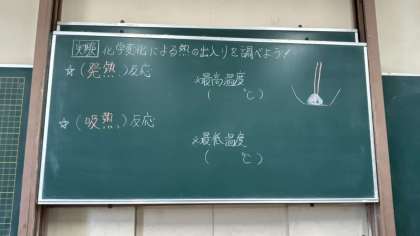 実験 化学変化による熱の出入りを調べよう!
☆(発熱)反応
※最高温度
(　　℃)
☆(吸熱)反応
※最低温度
(　　℃)